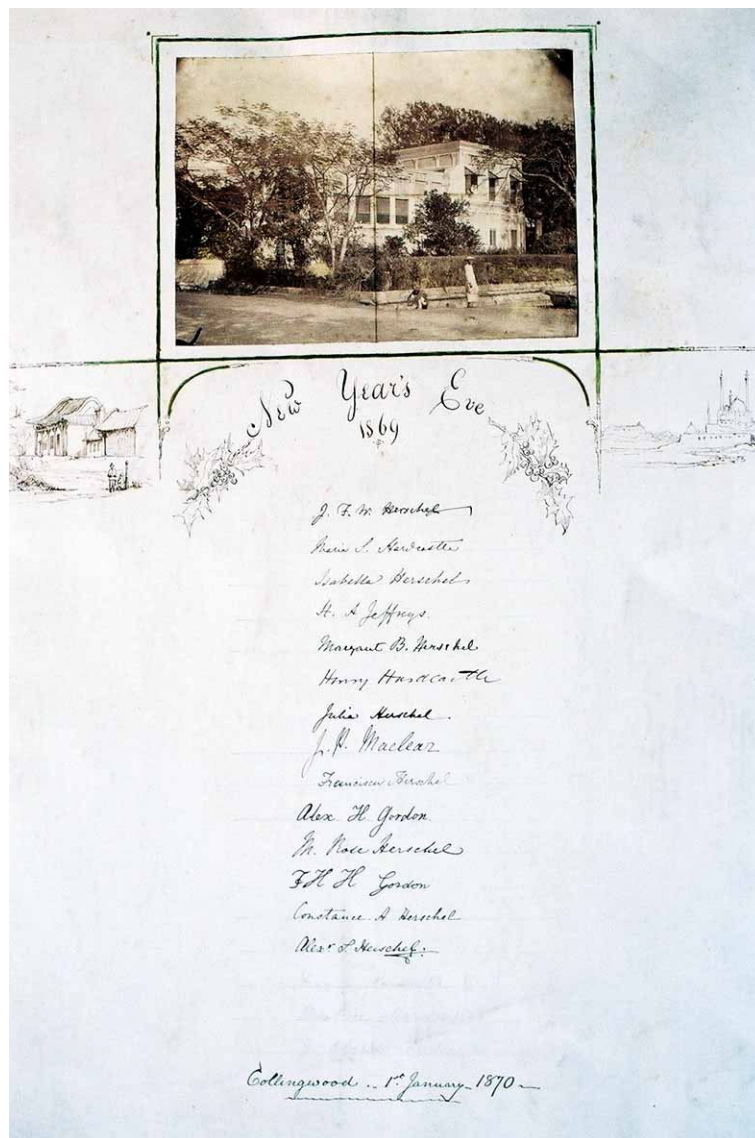 New Year's Eve
1869
J. F. W. Herschel
Maria S. Hardcastle
Isabella Herschel
H. A Jeffreys.
Margaret B. Herschel
Henry Hardcastle
Julia Herschel.
J. P. Maclear
Francisca Herschel
Alex H Gordon
M. Rose Herschel
F H H Gordon
Constance A Herschel
Alexr S. Herschel.
Collingwood .. 1st January 1870